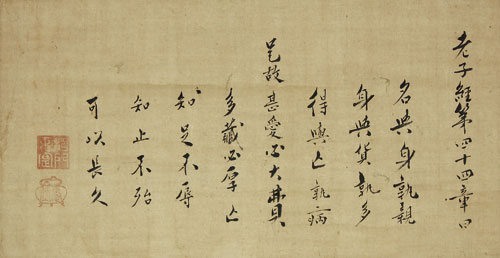 老子經第四十四章曰
名與身孰親
身與貨孰多
得與亡孰病
是故甚愛必大費
多藏必厚亡
知足不辱
知止不殆
可以長久